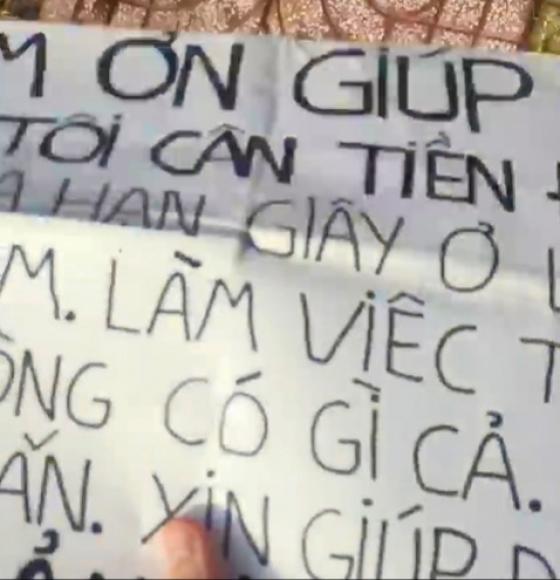 M ƠN GIÚP
TÔI CẦN TIỀN
HAN GIÂY Ở
M. LÀM VIÊC T
ÔNG CÓ GÌ CẢ.
ĂN. XIN GIÚP